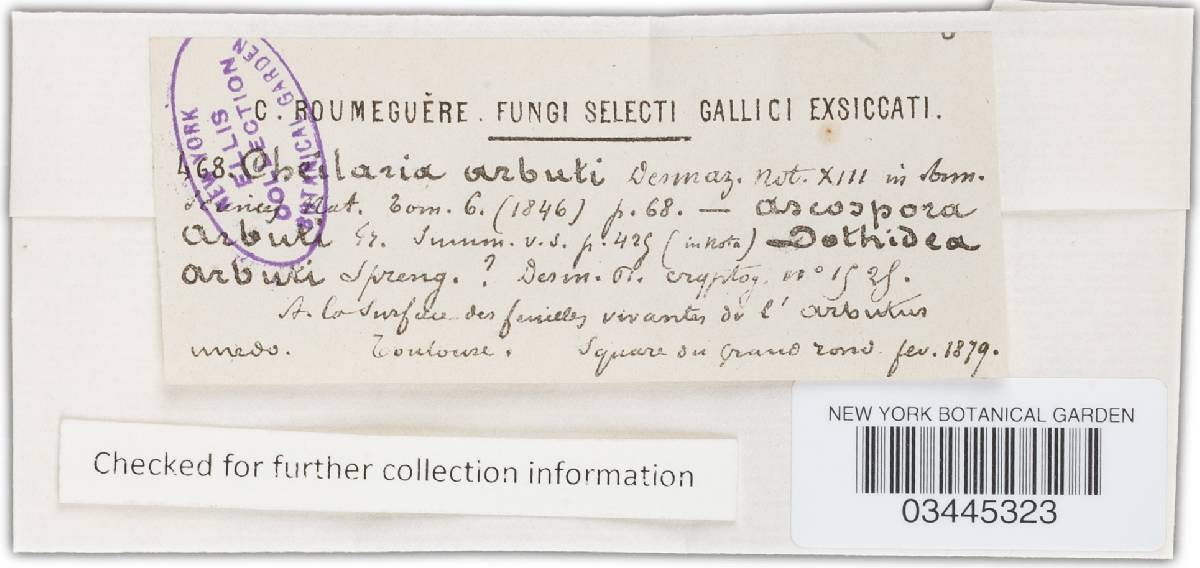 C. ROUMEGUÈRE. FUNGI SELECTI GALLICI EXSICCATI.
468. Cheilaria arbuti Desmaz. Not. XIII in
Nat. Tom. 6. (1846) p. 68. — ascospora
arbuti Fr. Summ. v. s. p. 425 (in Nota) — Dothidea
arbuti Spreng. ? Desm. cryptog. n° 1525.
A la Surface des feuilles vivantes de l' arbutus
unedo. Toulouse. Square du grand rond. fev. 1879.
NEW YORK BOTANICAL GARDEN
ELLIS
COLLECTION
Checked for further collection information
NEW YORK BOTANICAL GARDEN
03445323